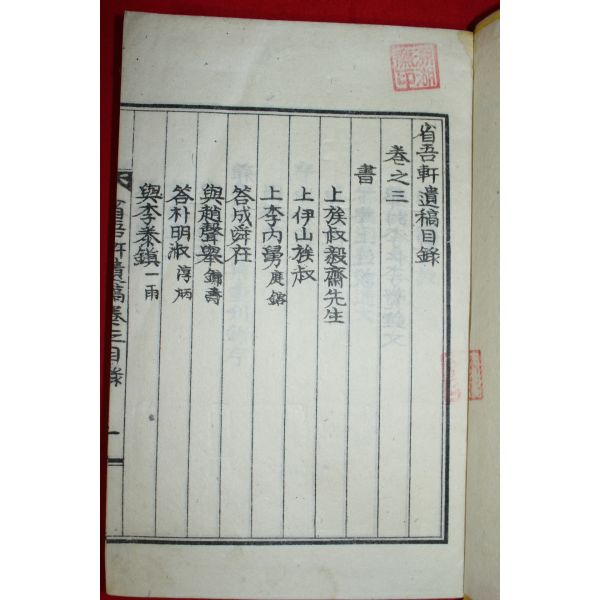 省吾軒遺稿目錄
卷之三
書
上族叔毅齋先生
上伊山族叔
上李內舅
答成舜在
與趙聲舉 鏞壽
答朴明淑 淳炳
與李泰鎭 一雨
省吾軒遺稿卷三目錄 一